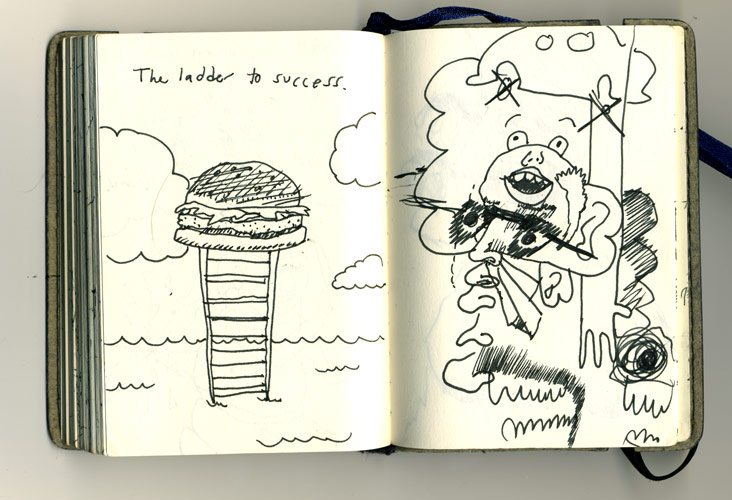 The ladder to success.